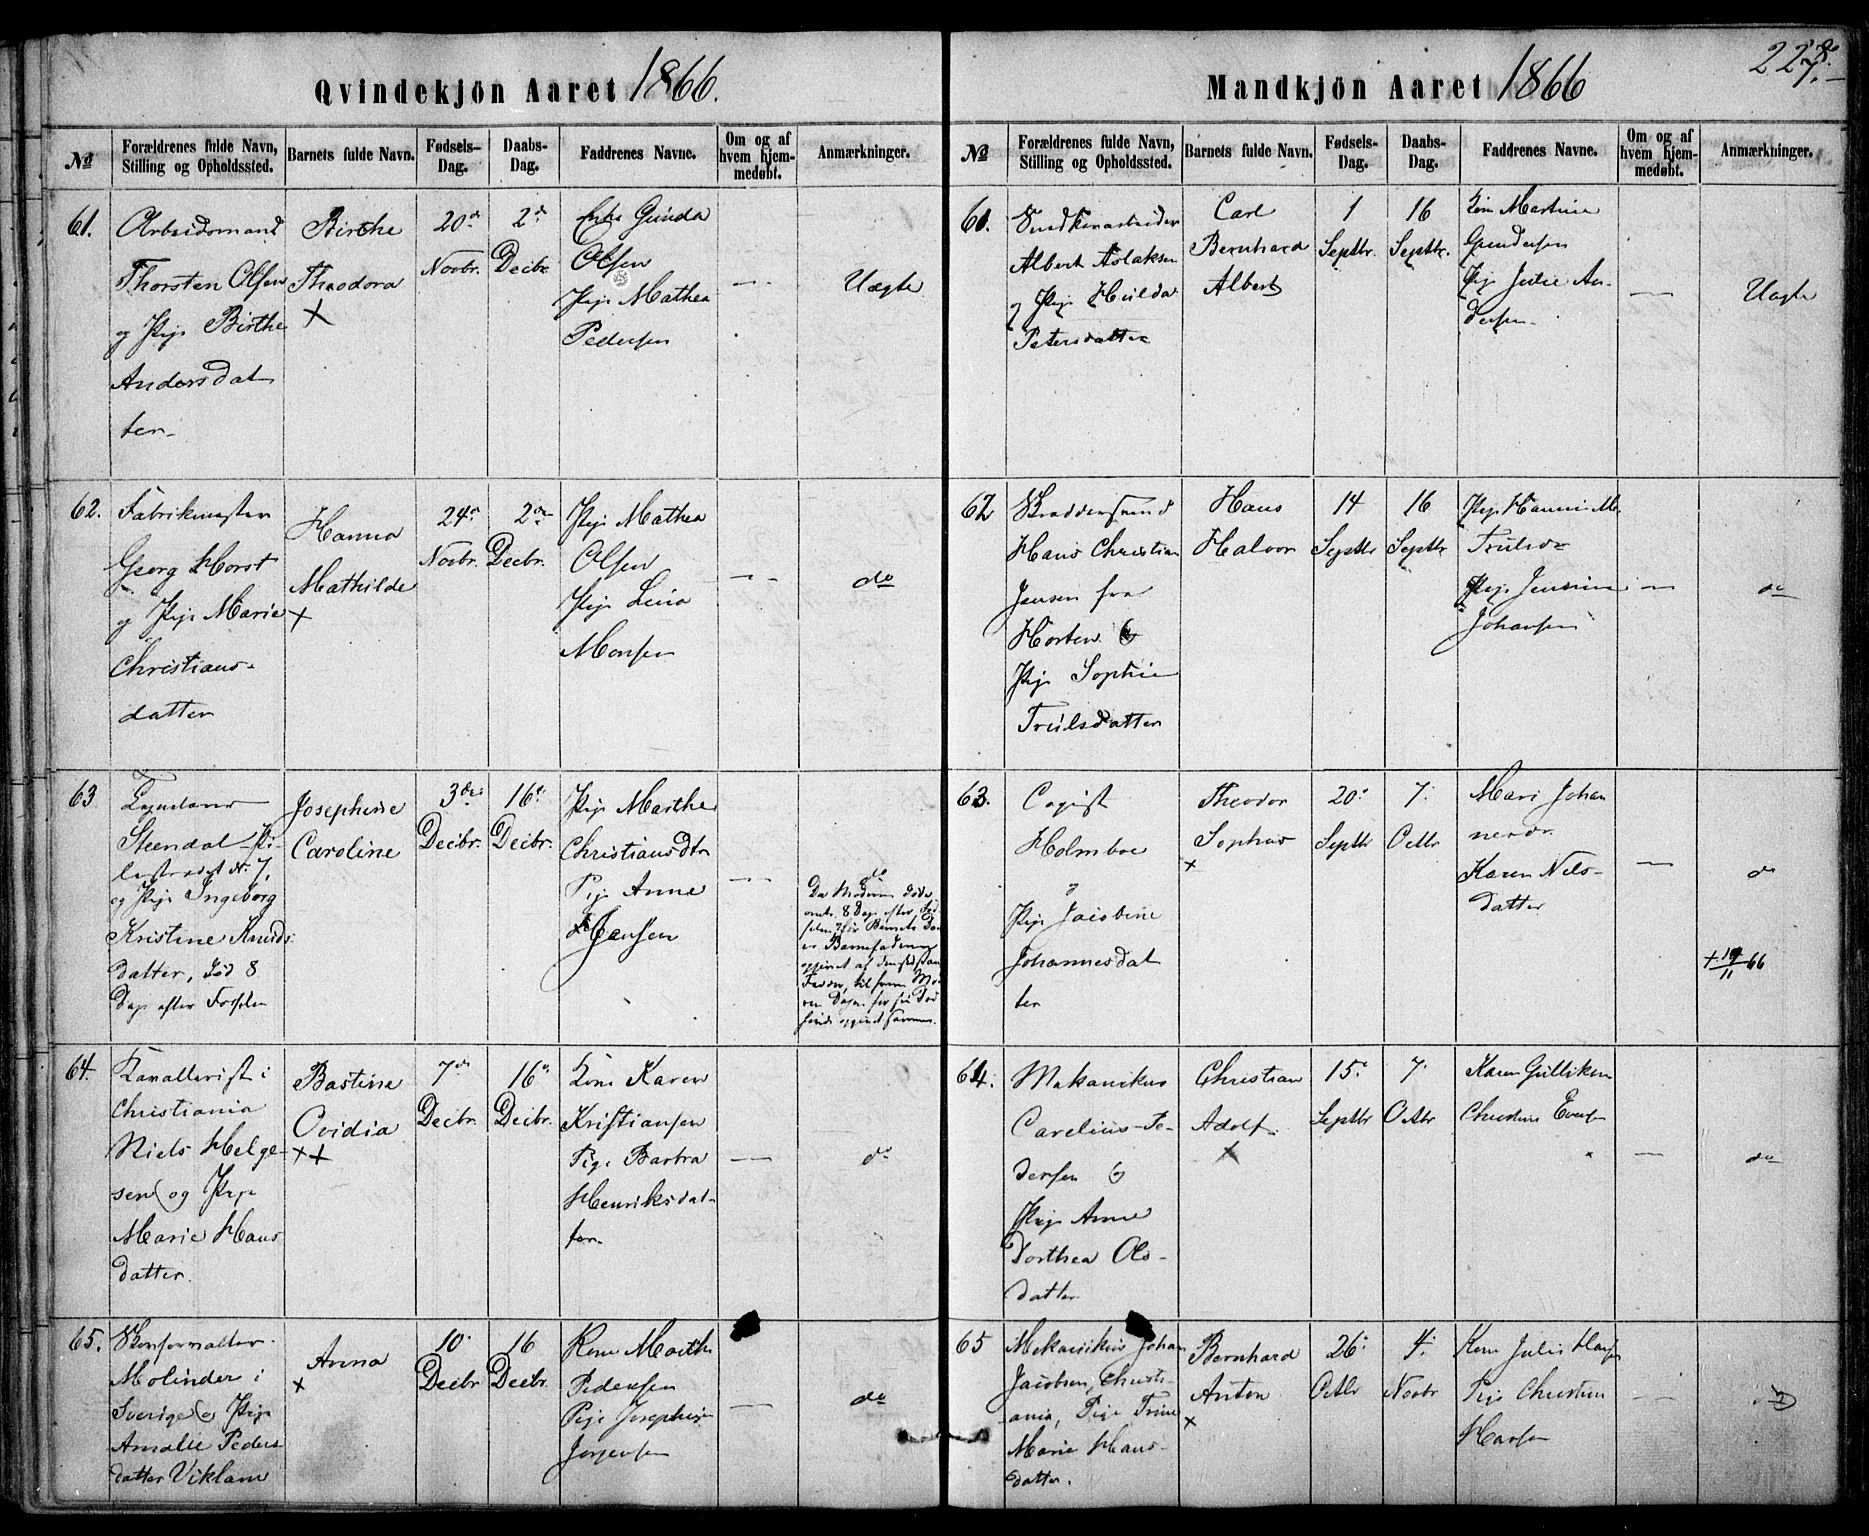 227. 8.
Qvindekjön Aaret 1866.
No
Forældrenes fulde Navn,
Stilling og Opholdssted.
Barnets fulde Navn.
Fødsels-
Dag.
Daabs-
Dag.
Faddrenes Navne.
Om og af
hvem hjem-
medøbt.
Anmærkninger.
61.
Arbeidsmand
Thorsten Olsen
og Pige Birthe
Anders dat
ter.
Birthe
Theodora
20de
Novbr.
2de
Decbr
Enke Gunda
Olsen
Pige Mathea
Pedersen
—
Uægte
62.
Fabrikmester
Georg Horst
og Pige Marie
Christians-
datter
Hanna
Mathilde
24de
Novbr.
2den
Decbr.
Pige Mathea
Olsen
Pige Lina
Monsen
—
do
63
Steendal
No. 7,
og Pige Ingeborg
Kristine Knuds
datter, død 8
Dage efter Fødselen
Josephine
Caroline
3die
Decbr.
16de
Decbr.
Pige Marthe
Christiansdtr
Pige Anne
Hansen
—
do
Da Moderen døde
omtr. 8 Dage efter Fød-
selen
er Barnefaderen
opgivet af
64.
Kavallerist i
Christiania
Niels Helge-
sen og Pige
Marie Hans
datter.
Bastine
Ovidia
7de
Decbr.
16de
Decbr.
Kone Karen
Kristiansen
Pige Barbra
Henriksdat-
ter.
—
do
65.
Molinder i
Sverige og Pige
Amalie Peders
datter Viklam
Anna
10.
Decbr
16
Decbr
Kone Marthe
Pedersen
Pige Josephine
Jørgensen
—
do
Mandkjön Aaret 1866
No
Forældrenes fulde Navn,
Stilling og Opholdssted.
Barnets fulde Navn.
Fødsels-
Dag.
Daabs-
Dag.
Faddrenes Navne.
Om og af
hvem hjem-
medøbt.
Anmærkninger.
61.
Snedkerarbeider
Albert Aslaksen
og Pige Hulda
Petersdatter
Carl
Bernhard
Albert
1
Septbr.
16
Septbr.
Kone Martine
Gundersen
Pige Julie An
dersen.
—
Uægte
62
Skræddersvend
Hans Christian
Jansen fra
Horten og
Pige Sophie
Trulsdatter
Hans
Halvor
14
Septbr
16
Septbr
Pige Hanna M.
Trulsdr
Pige Jensine
Johansen
—
do
63.
Copist
Holmboe
og
Pige Jacobine
Johannesdat
ter
Theodor
Sophus
20.
Septbr
7.
Octbr
Mari Johan
nesdr.
Karen Nils-
datter
—
do
+ 19/11 66
64.
Mekanikus
Carelius Pe-
dersen og
Pige Anne
Dorthea Ols-
datter
Christian
Adolf
15.
Septbr
7.
Octbr
Karen Gulliksen
Christine Evensen
—
do
65
Mekanikus Johan
Jacobsen, Christi-
ania, Pige Trine
Marie Hans-
datter.
Bernhard
Anton
26.
Octbr
4.
Novbr
Kone Julie Hansen
Pige Christine
Hansen
—
do